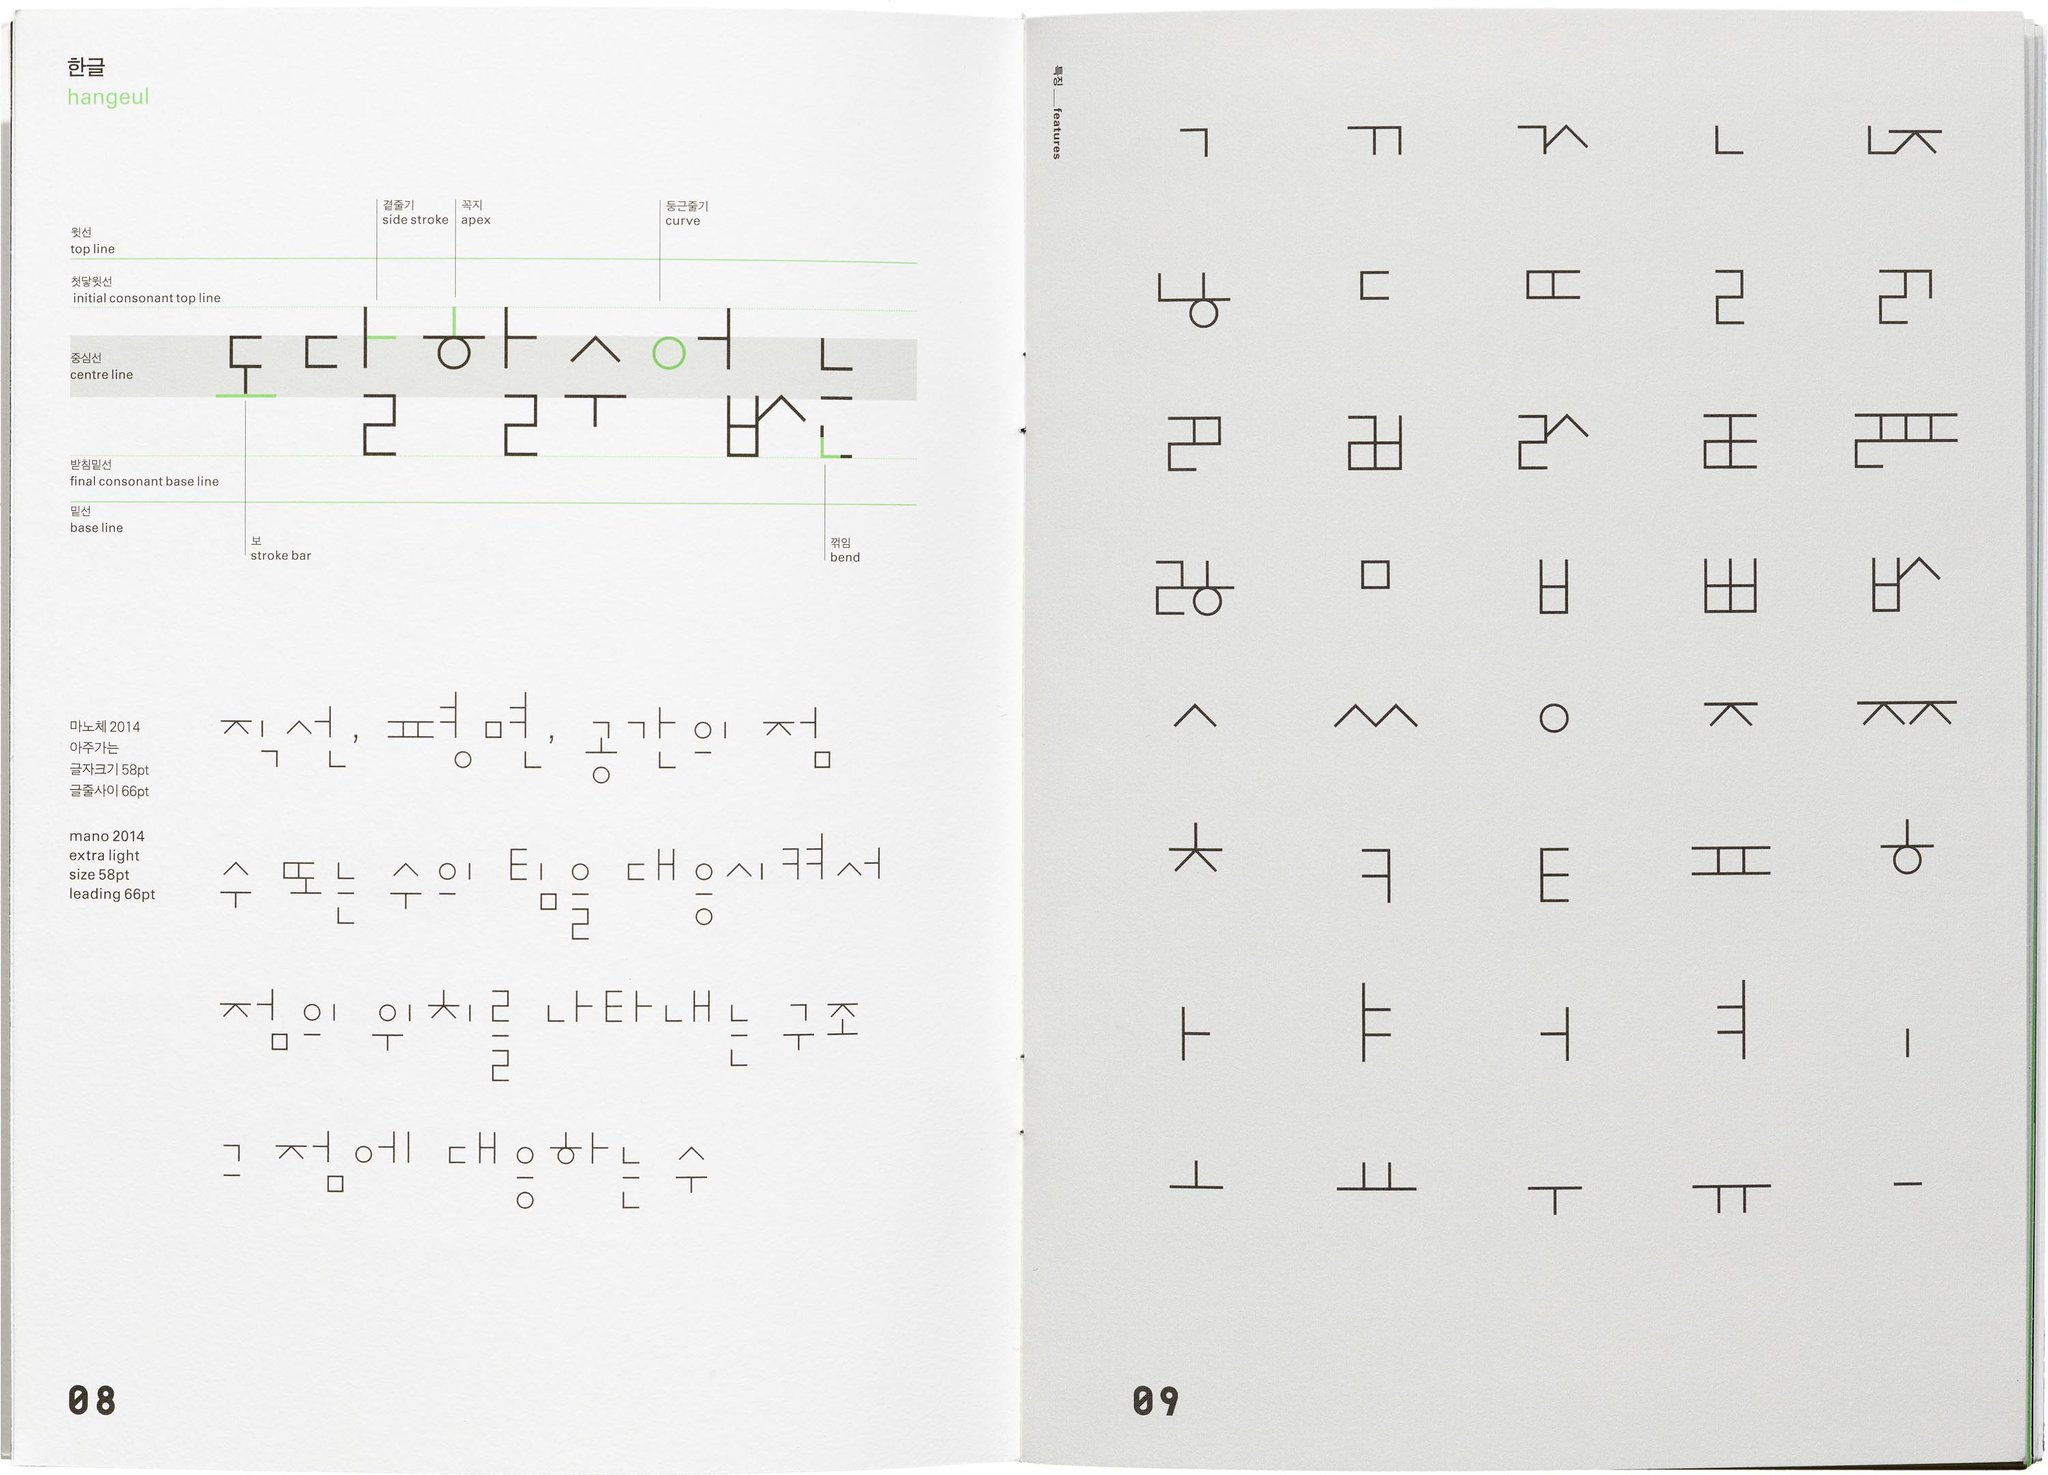 한글
hangeul
곁줄기
side stroke
꼭지
apex
둥근줄기
curve
윗선
top line
첫닿윗선
initial consonant top line
중심선
centre line
도달할 수 없는
받침밑선
final consonant base line
밑선
base line
보
stroke bar
꺾임
bend
마노체 2014
아주가는
글자크기 58pt
글줄사이 66pt
mano 2014
extra light
size 58pt
leading 66pt
직선, 평면, 공간의 점
수 또는 수의 팀을 대응시켜서
점의 위치를 나타내는 구조
그 점에 대응하는 수
08
특징__features
ㄱ ㄲ ㄳ ㄴ ㄵ
ㄶ ㄷ ㄸ ㄹ ㄺ
ㄻ ㄼ ㄽ ㄾ ㄿ
ㅀ ㅁ ㅂ ㅃ ㅄ
ㅅ ㅆ ㅇ ㅈ ㅉ
ㅊ ㅋ ㅌ ㅍ ㅎ
ㅏ ㅑ ㅓ ㅕ ㅣ
ㅗ ㅛ ㅜ ㅠ ㅡ
09